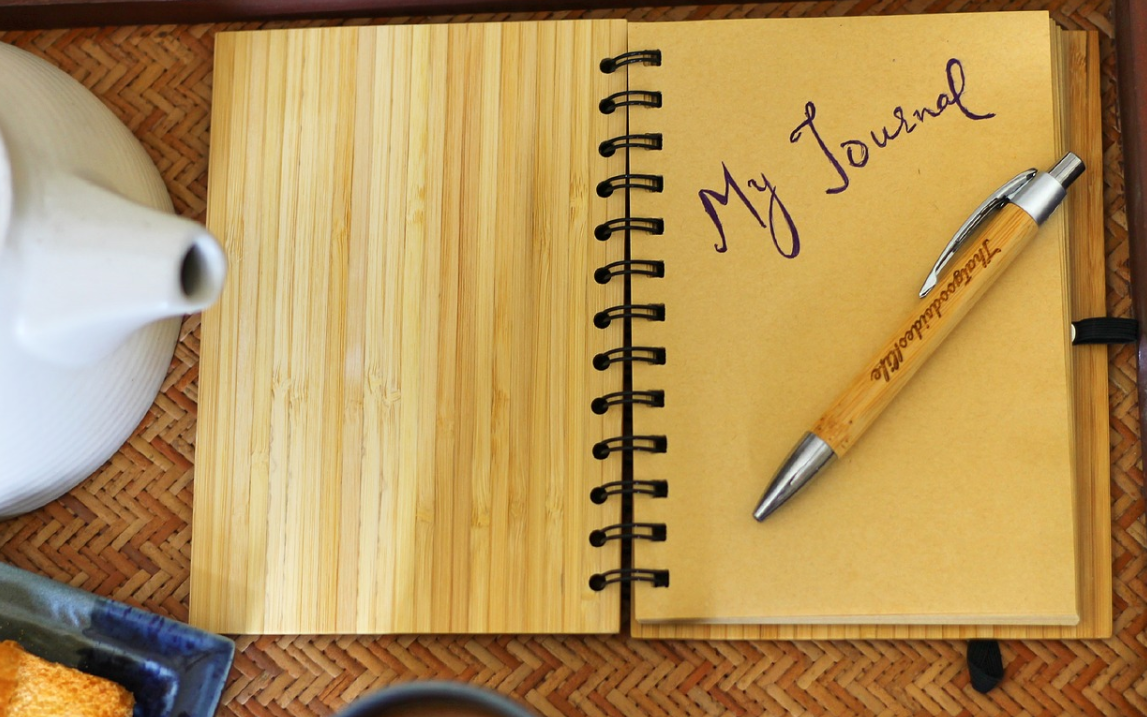 My Journal
Thatgoodsideoflife